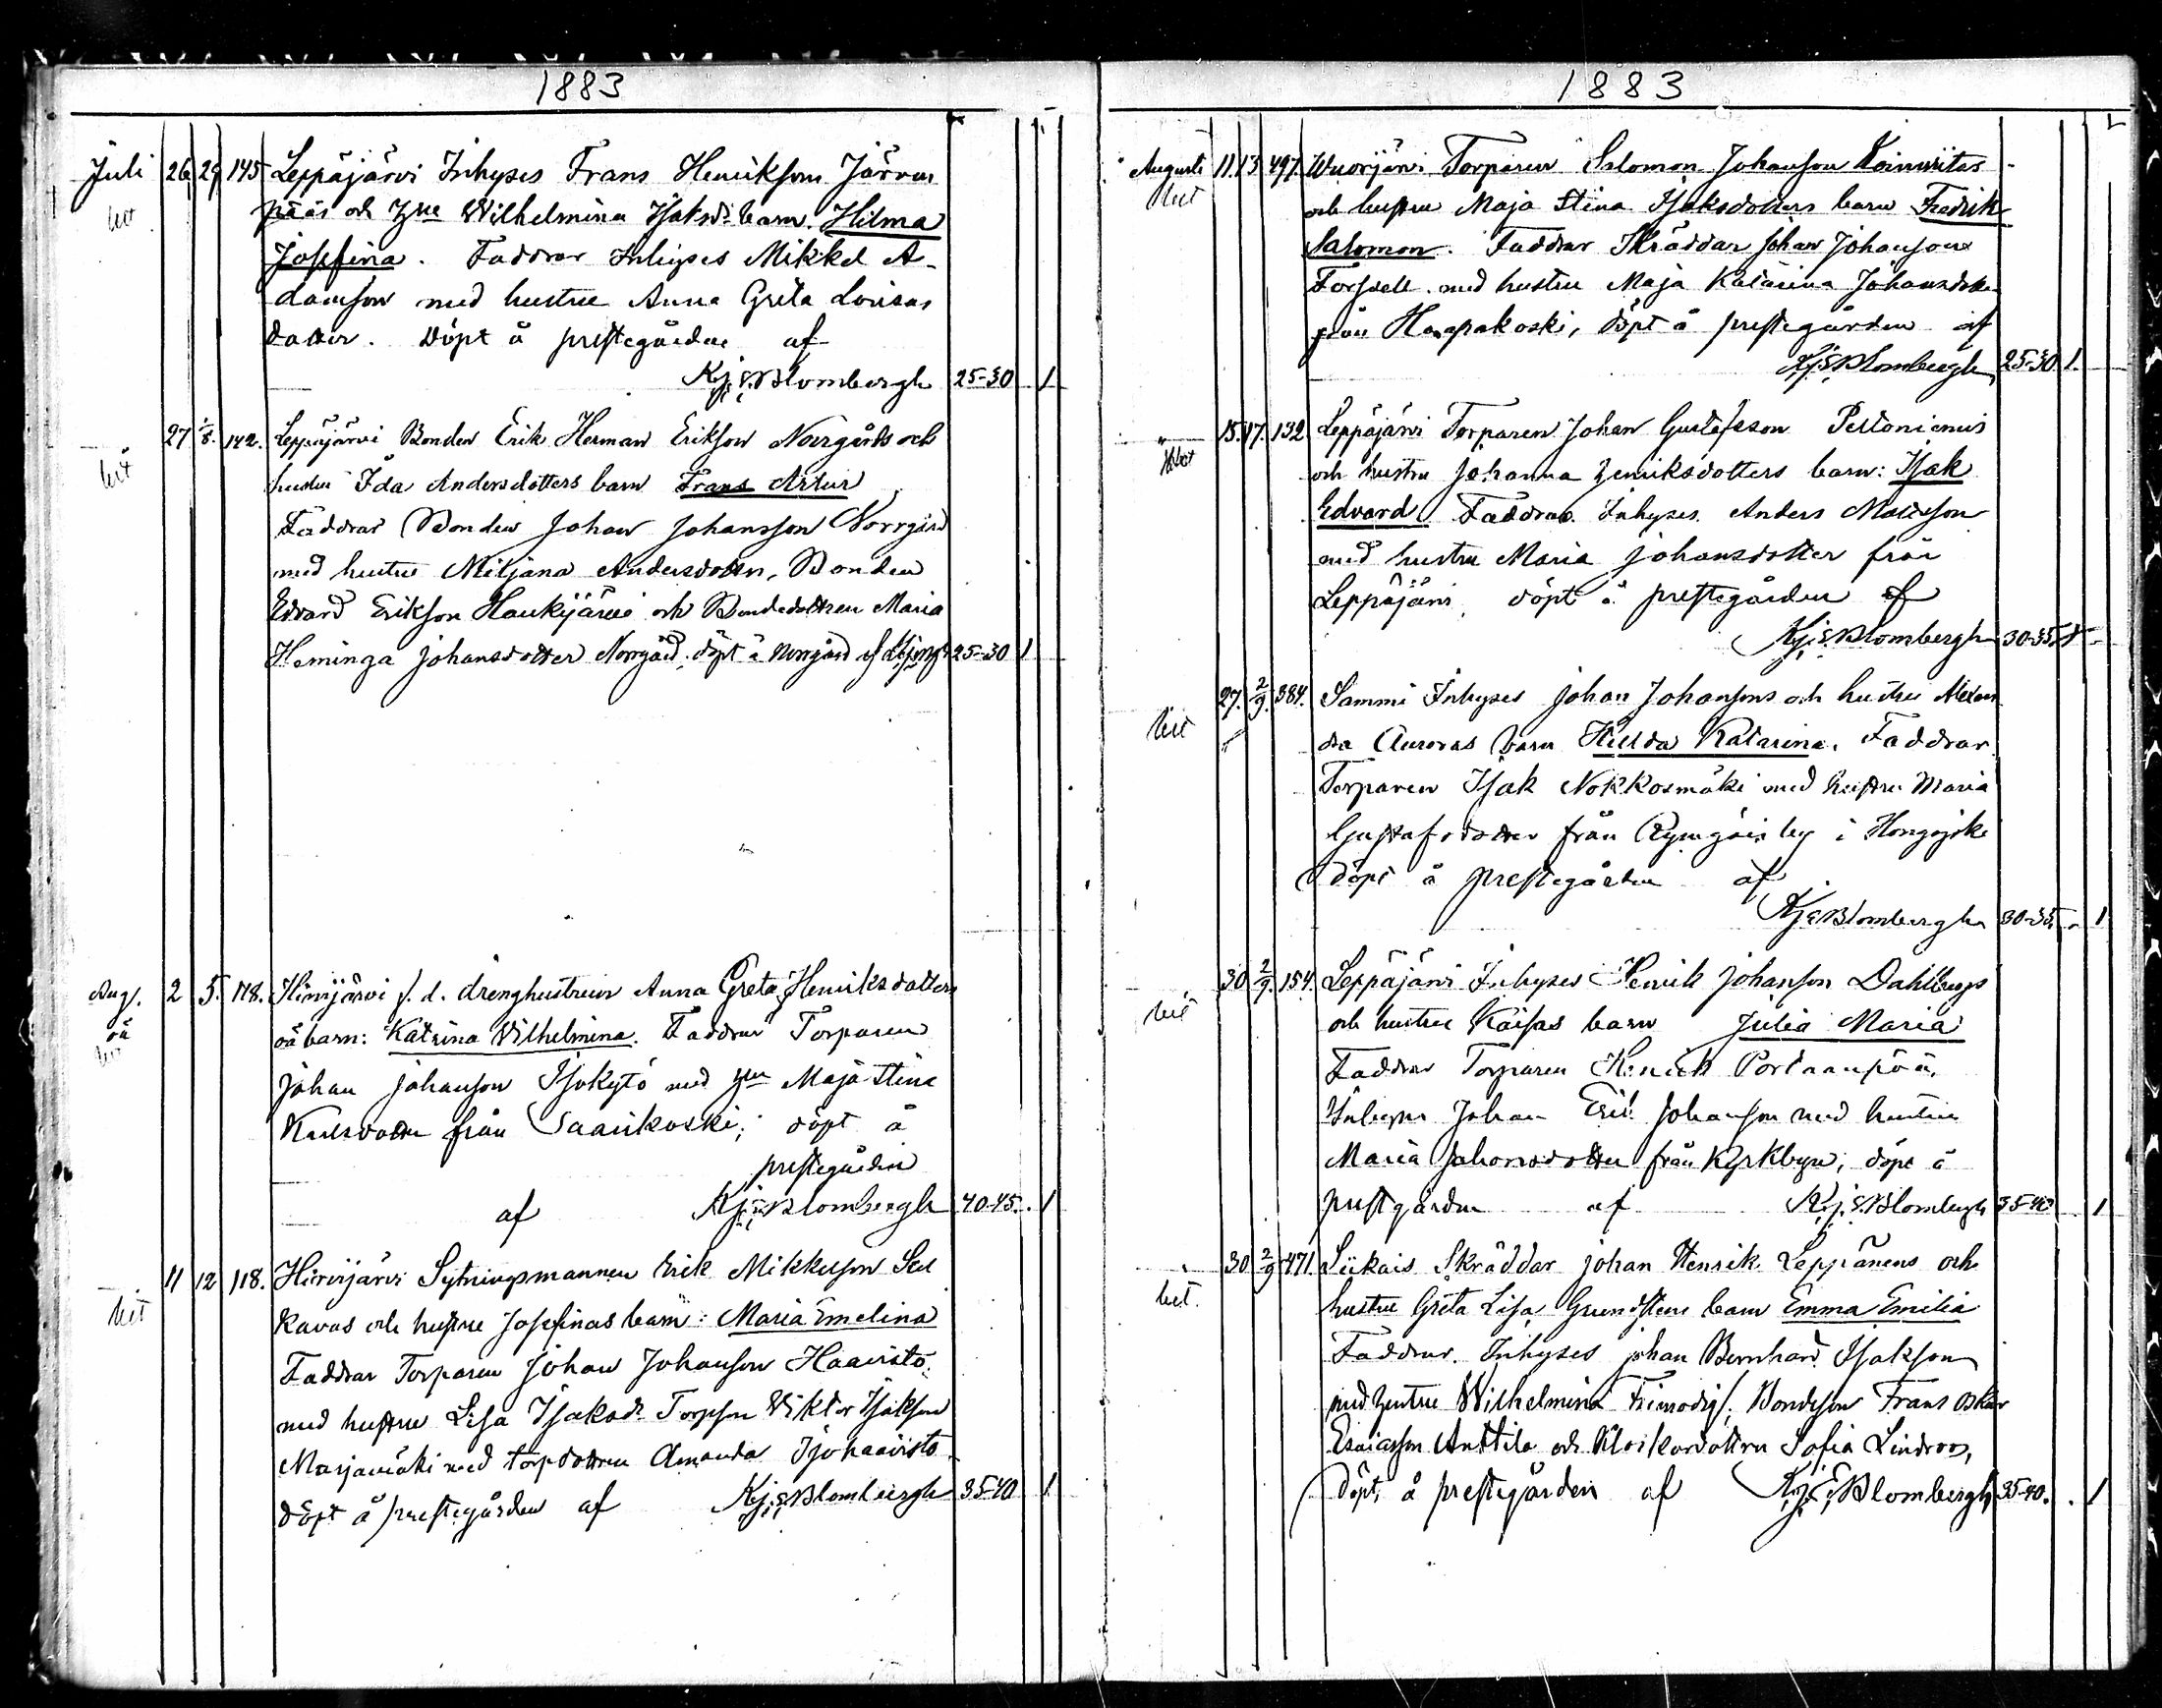 1883
Juli 26 29 145 Leppäjärvi Inhyses Frans Henriksons Järven
bet pääs och hue Wilhelmina Isaksds barn. Hilma
Josefina. Faddrar Inhyses Mikkel A-
damson med hustru Anna Greta Lovisas
dotter. Döpt å prestegården af
Kj: E. Blombergh 25-30 1
27 1/8. 142. Leppäjärvi Bonden Erik Herman Erikson Norrgårds och
bet hustru Ida Andersdotters barn Frans Artur
Faddrar Bonden Johan Johansson Norrgård
med hustru Miljana Andersdotter, Bonden
Edvard Erikson Haukijärvi och Bondedottren Maria
Heminga Johansdotter Norrgård, döpt å Norrgård af 25-30 1
Aug. 2 5. 118. Hirvijärvi f. d. drenghustrun Anna Greta Henriksdotters
oä barn: Katrina Wilhelmina. Faddrar Torparen
bet Johan Johanson Isokytö med hun Maja Stina
Karlsdotter från Saarikoski; döpt å
prestegården
af Kj: E. Blombergh 40-45. 1
11 12 118. Hirvijärvi Sytningsmannen Erik Mikkelson
bet kavas och hustru Josefinas barn: Maria Emelina
Faddrar Torparen Johan Johanson Haavisto
med hustru Lisa Isaksdr Torpson Wiktor Isakson
Marjamäki med torpdottren Amanda Isohaavisto
döpt å prestegården af Kj: E. Blombergh 35-40 1
1883
Augusti 11 13 497. Wuorijärvi Torparen Salomon Johanson Koivuvitas
bet och hustru Maja Stina Isaksdotters barn Fredrik
Salomon. Faddrar Skräddar Johan Johanson
Forssell med hustru Maja Katarina Johansdotter
från Haapakoski, döpt å prestegården af
Kj: E. Blombergh 25-30 1.
15. 17. 132 Leppäjärvi Torparen Johan Gustafsson Peltoniemis
bet och hustru Johanna Henriksdotters barn: Isak
Edvard Faddrar Inhyses Anders Matsson
med hustru Maria Johansdotter från
Leppäjärvi, döpt å prestegården af
Kj: E. Blombergh 30-35. 1
27. 2/9. 384. Sammi Inhyses Johan Johansons och hustru Alexan
bet dra Auroras barn Hulda Katarina. Faddrar
Torparen Isak Nokkosmäki med hustru Maria
Gustafsdotter från by i Hongojoki
döpt å prestegården af
Kj: E. Blombergh 30-35. 1
30 2/9. 154. Leppäjärvi Inhyses Henrik Johanson Dahlbergs
bet och hustru Kaisas barn Julia Maria
Faddrar Torparen Henrik Portaanpää,
Inhyses Johan Erik Johanson med hustru
Maria Johansdotter från Kyrkbyn; döpt å
prestgården af Kj: E. Blombergh 35-40 1
30 2/9 471. Liikais Skräddar Johan Henrik Leppänens och
bet. hustru Greta Lisa Grundstens barn Emma Emilia
Faddrar. Inhyses Johan Bernhard Isakson
med hustru Wilhelmina Frimodig; Bondeson Frans Oskar
Esaiasson Anttila och Klockardottren Sofia Lindroos,
döpt, å prestegården af Kj: E. Blombergh 35-40. 1